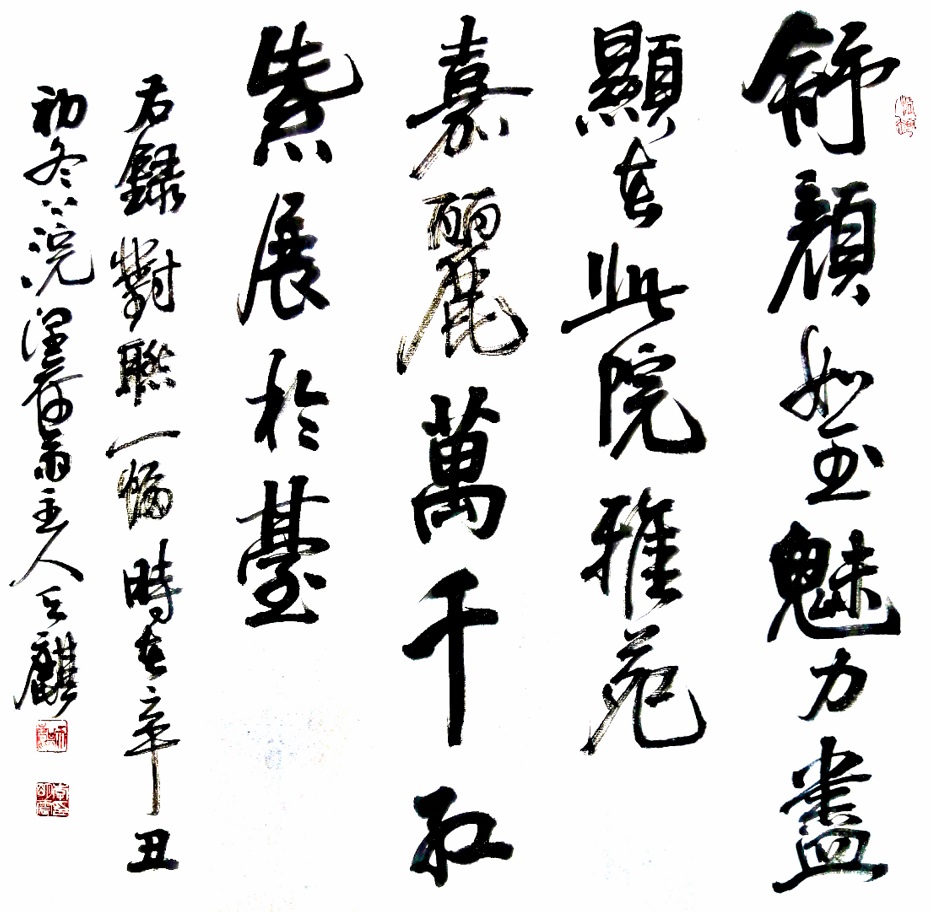 舒顏如玉魅力盡
顯在此院雅苑
嘉麗萬千紅
紫展於臺
右錄對聯一幅時在辛丑
初冬於浣 齋主人 麒